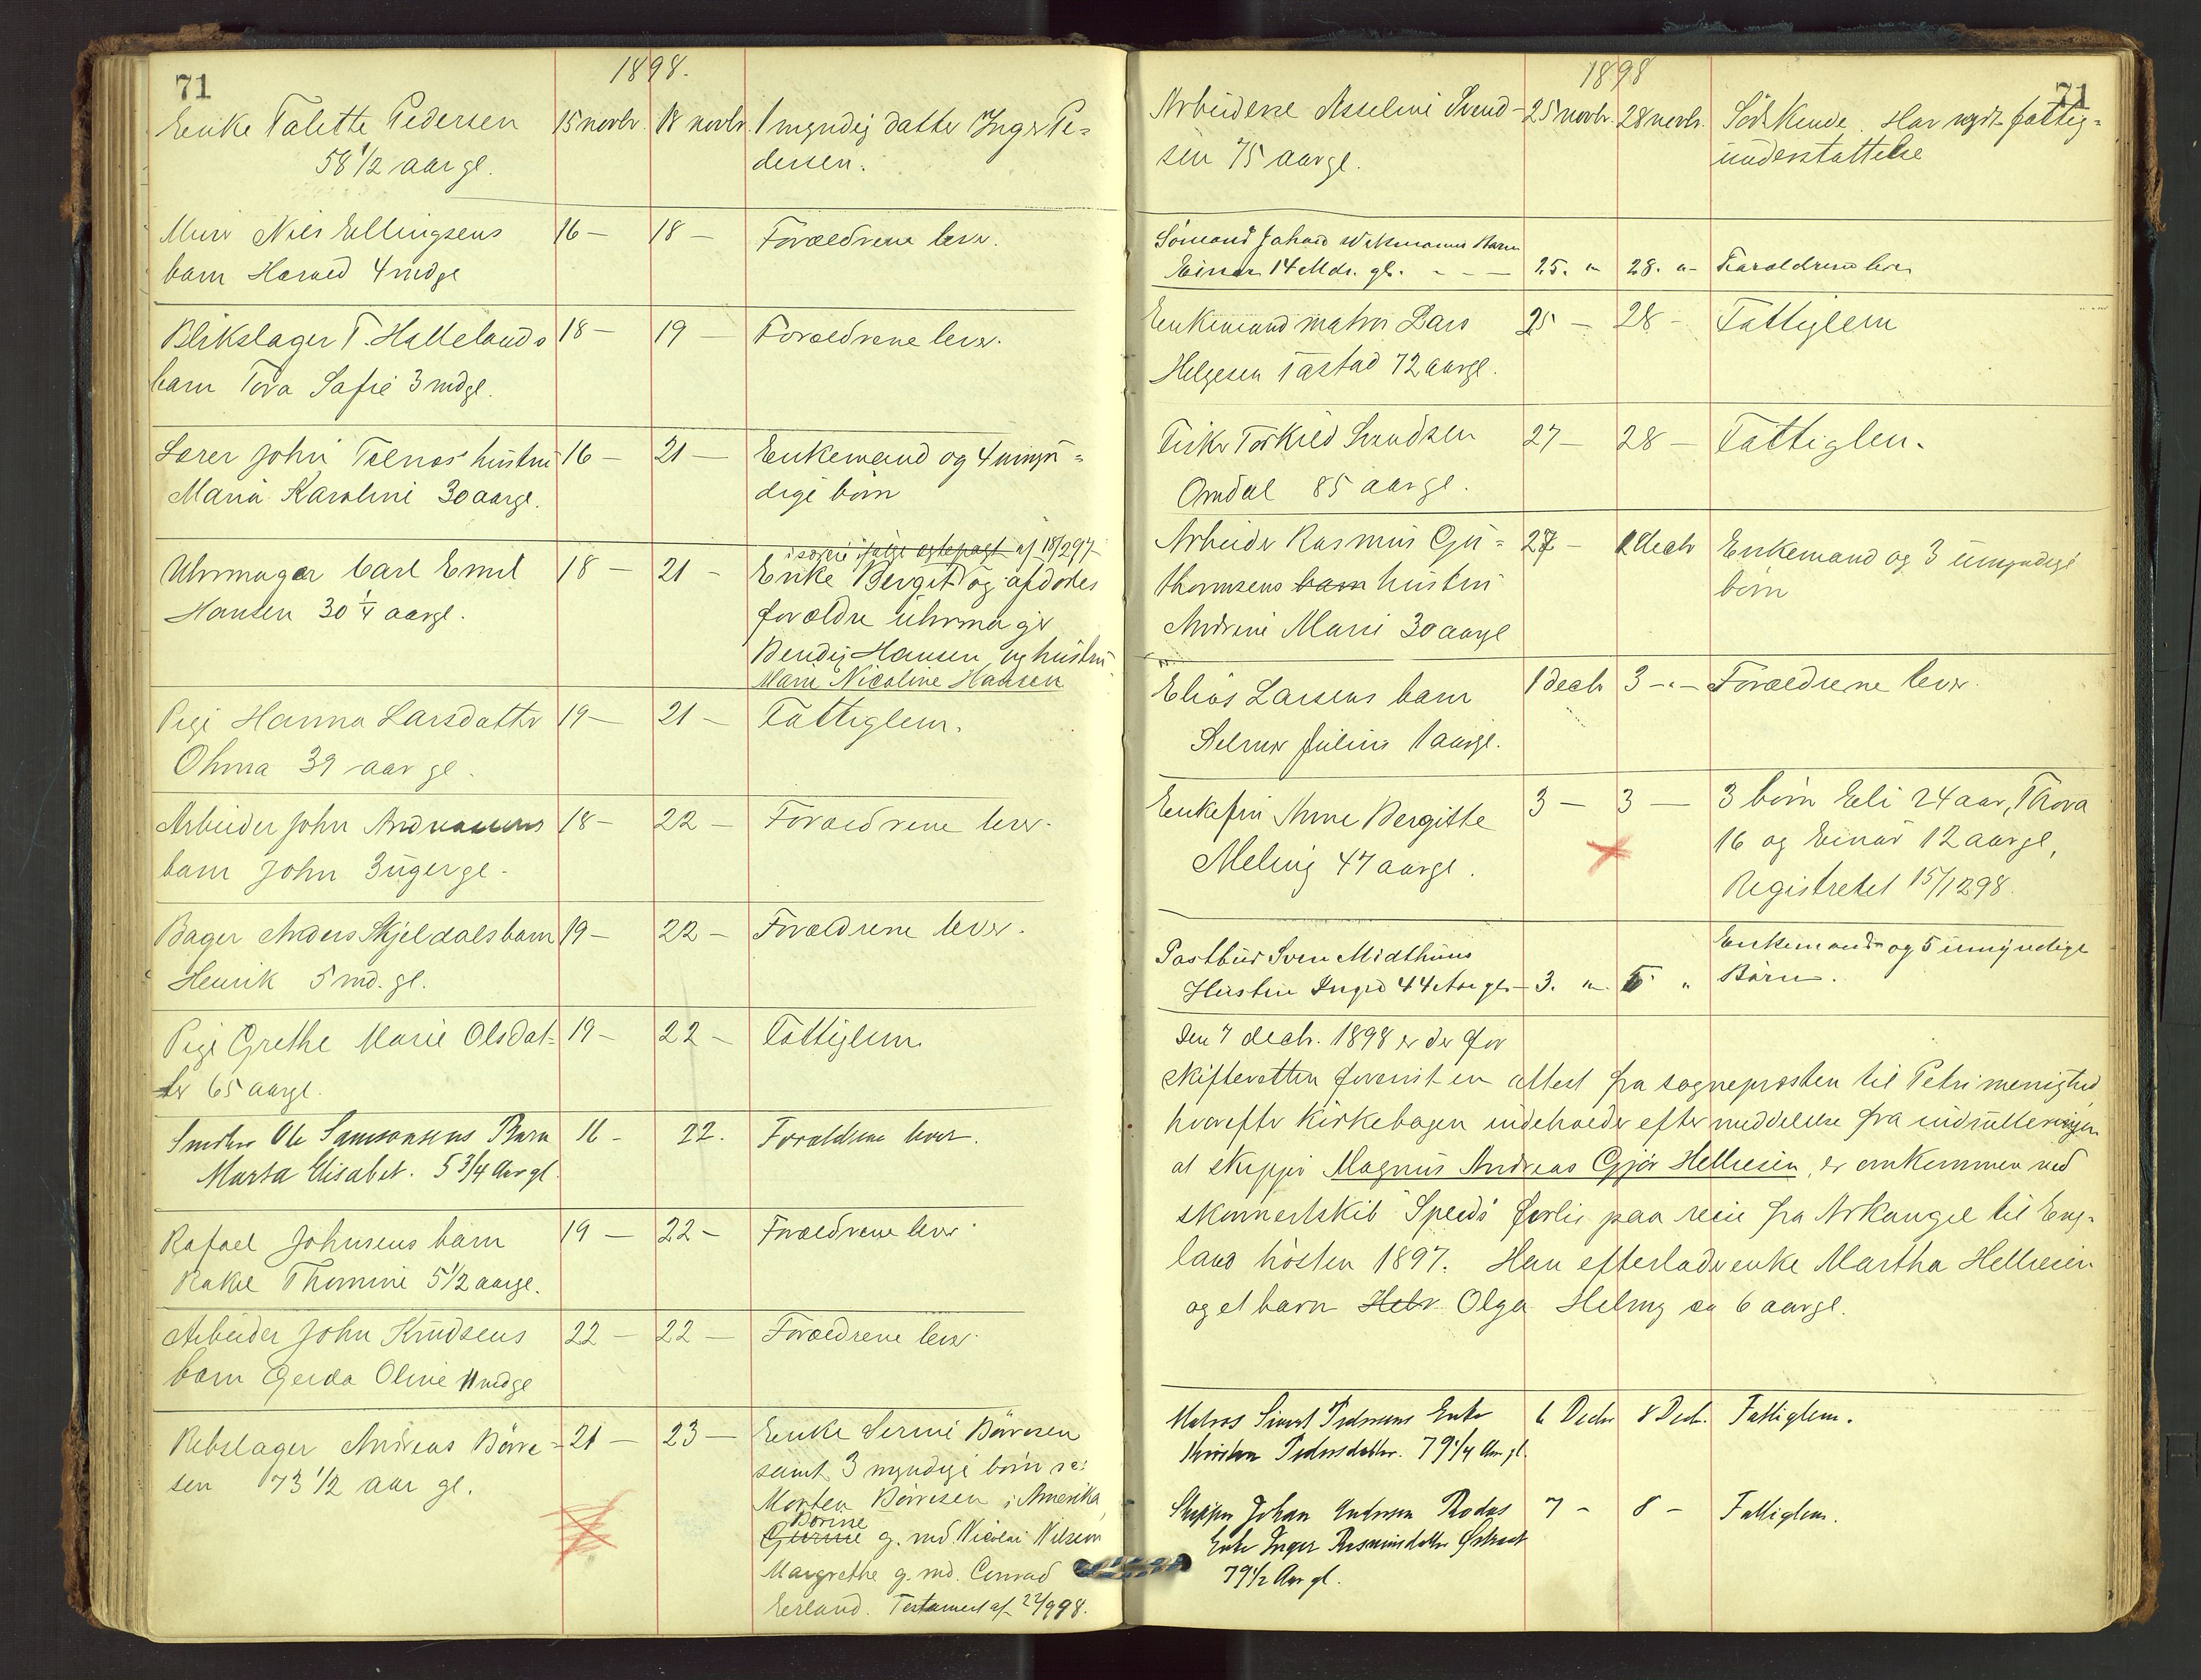 71
1898.
Enke Talette Pedersen 15 novbr. 18 novbr. 1 myndig datter Inger Pe=
58 1/2 aar gl. dersen.
Murer Nils Ellingsens 16 — 18 — Forældrene lever.
barn Harald 4 mdgl
Blikslager T. Hallelands 18 — 19 — Forældrene lever.
barn Tora Sofie 3 mdgl.
Lærer John Tølnæs hustru 16 — 21 — Enkemand og 4 umyn=
Maria Karoline 30 aargl. dige børn
af 18/2 97
Uhrmager Carl Emil 18 — 21 — Enke Bergit og afdødes
Hansen 30 1/4 aargl. forældre uhrmager
Bendix Hansen og hustru
Marie Nicoline Hansen
Pige Hanna Larsdatter 19 — 21 — Fattiglem.
Ohma 39 aar gl.
Arbeider John Andreasens 18 — 22 — Forældrene lever.
barn John 3 uger gl.
Bager Anders Skjeldals barn 19 — 22 — Forældrene lever.
Henrik 5 md. gl.
Pige Grethe Marie Olsdat= 19 — 22 — Fattiglem
ter 65 aargl.
Ole Samsonsens Barn 16 — 22. Forældrene lever.
Marta Elisabet. 5 3/4 Aar gl.
Rafael Johnsens barn 19 — 22 — Forældrene lever
Rakel Thomine 5 1/2 aargl.
Arbeider John Knudsens 22 — 22 — Forældrene lever
barn Gerda Oline 11 mdgl
Rebslager Andreas Børre= 21 — 23 — Enke Serine Børresen
sen 73 1/2 aar gl. samt 3 myndige børn
Morten Børresen i Amerika,
Børine
g. med Nicolai Nilsen
Margrethe g. md. Conrad
Erland. Testament af 22/9 98.
1898
71
Arbeiderske Asseline Svend= 25 novbr. 28 novbr. Sødskende. Har nydt fattig=
sen 75 aargl. understøttelse
Sømand Johan Barn
Einar 14 Mdr. gl. - - — 25. " 28. " Forældrene lever
Enkemand matros Lars 25 — 28 — Fattiglem
Helgesen Tastad 72 aargl.
Fisker Torkild Svendsen 27 — 28 — Fattiglem.
Omdal 85 aargl.
Arbeider Rasmus Gu= 27 — 1 decbr Enkemand og 3 umyndige
thormsens barn hustru børn
Andrine Marie 30 aargl
Elias Larsens barn 1 decbr 3 — " — Forældrene lever.
Selmer Julius 1 aargl.
Enkefru Anne Bergitte 3 — 3 — 3 børn Eli 24 aar, Thora
Meling 47 aargl. 16 og Einar 12 aargl,
Registreret 15/12 98.
Postbud Sven Midthuns Enkemand og 5 umyndige
Hustru Ingrid 44 Aar gl. — 3. " 5 " Børn.
Den 7 decbr. 1898 er der for
skifteretten forevist en attest fra sognepresten til Petri menighed,
hvorefter kirkebogen indeholder efter meddelelse fra indrulleringen
at skipper Magnus Andreas Gjør Helliesen, er omkommen ved
skonnertskib "Speeds" forlis paa reise fra Arkangel til Eng=
land høsten 1897. Han efterlader enke Martha Helliesen
og et barn Helv Olga Helmy ca 6 aargl.
Matros Sivert Pedersens Enke 6 Decbr 8 Decb. Fattiglem.
Kristen Pedersdatter. 79 1/4 Aar gl.
Skipper Johan Andersen Rodas 7 — 8 — Fattiglem.
Enke Inger Rasmusdatter
79 1/2 Aar gl.